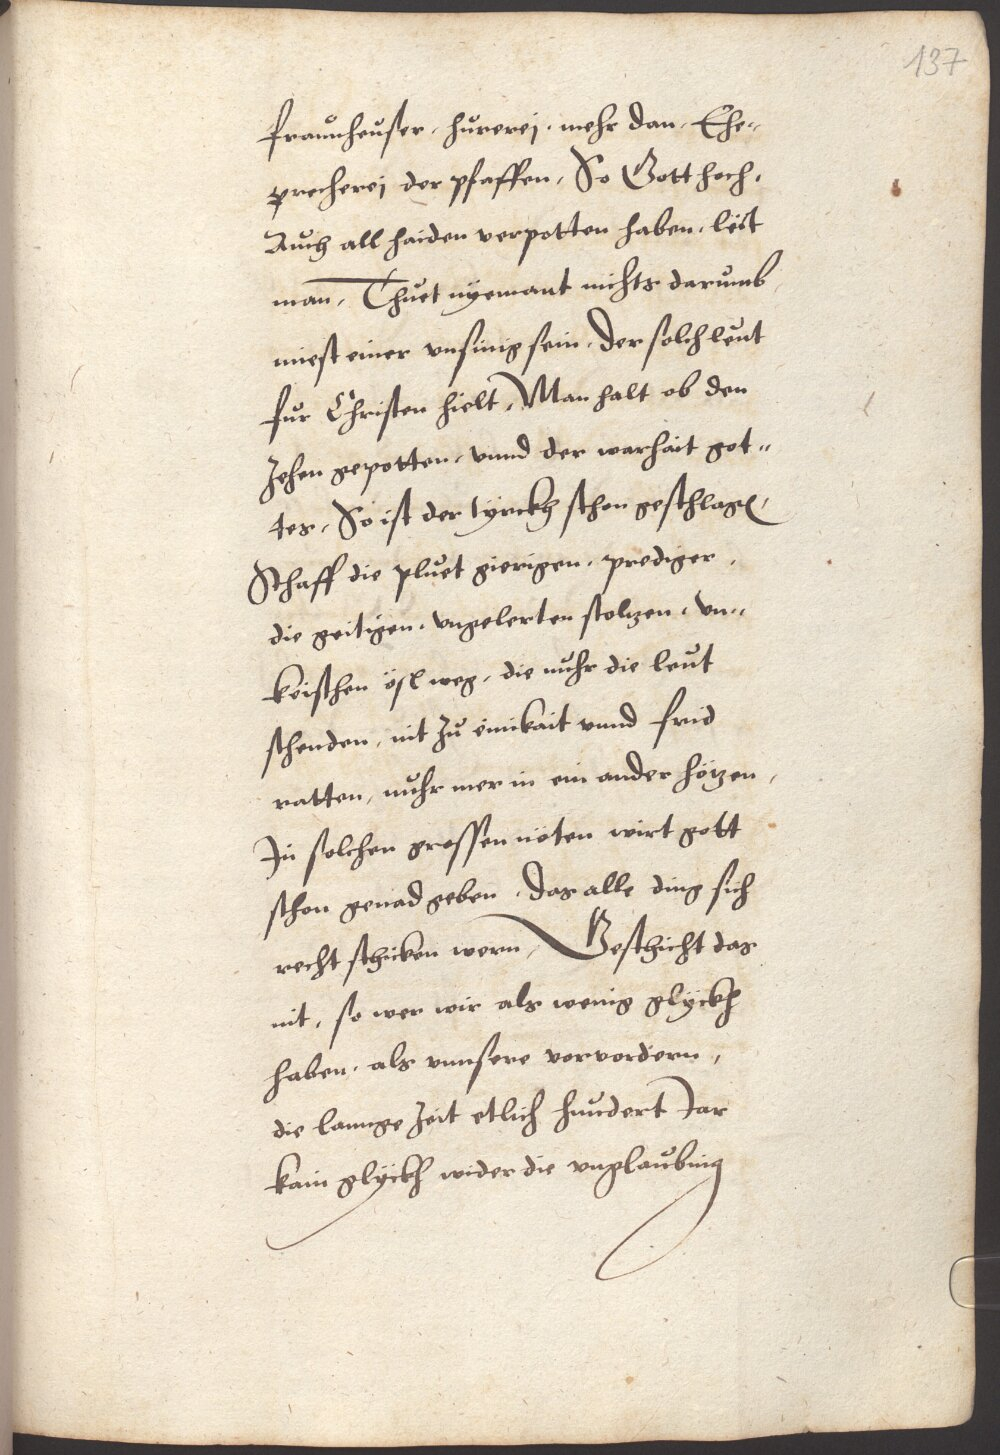 137
fraunheuser, hurerej, mehr dan, Ehe„
precherej der pfaffen, So Gott hoch,
Auch all haiden verpotten haben, lest
man, Thuet nyemant nichts darumb
miest einer vnsinig sein, der solch leut
fur Christen hielt, Man halt ob den
Zehen gepotten, vnnd der warhait got„
tes, So ist der tyrckh schon geschlagen,
Schaff die pluet gierigen, prediger,
die geitigen, vngelerten stoltzen, vn„
keischen ösl weg, die nuhr die leut
schenden, nit zu einikait vnnd frid
ratten, nuhr mer in ein ander hötzen,
In solchen grossen nöten wirt gott
schon genad geben, das alle ding sich
recht schicken wern, Geschicht das
nit, so wer wir als wenig glyckh
haben, als vnnsere vorvordern,
die lannge Zeit etlich hundert Jar
kain glyckh wider die vnglaubing